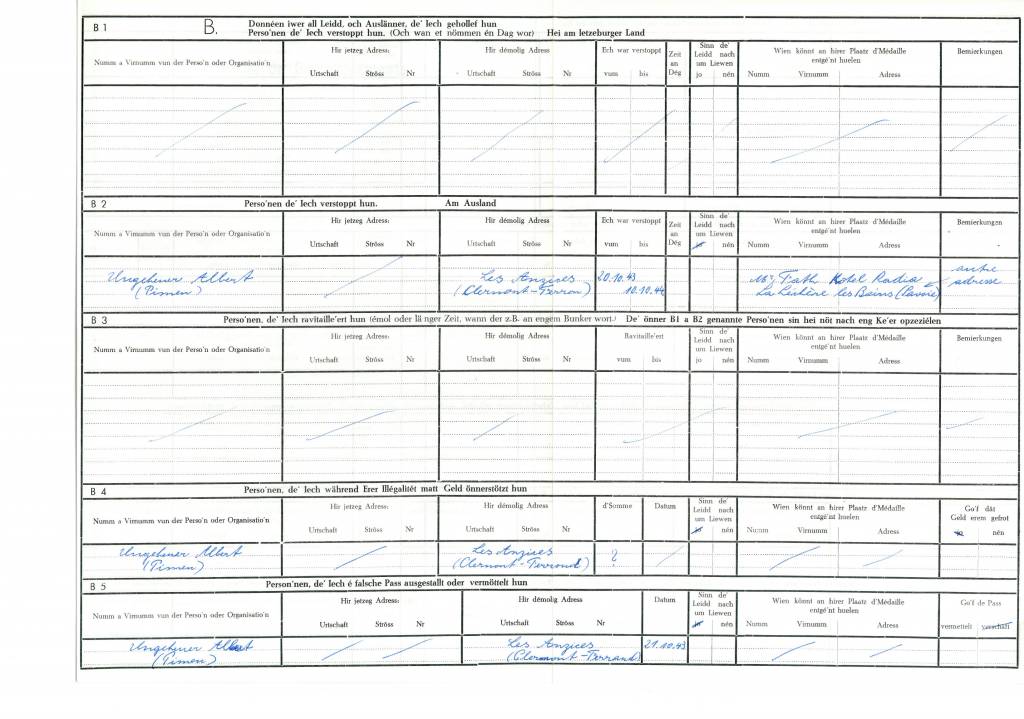 B 1
B.
Donnéen iwer all Leidd, och Auslänner, de' Iech gehollef hun
Perso'nen de' Iech verstoppt hun. (Och wan et nömmen én Dag wor) Hei am letzeburger Land
Numm a Virnumm vun der Perso'n oder Organisatio'n
Hir jetzeg Adress:
Urtschaft Ströss Nr
Hir démolig Adress
Urtschaft Ströss Nr
Ech war verstoppt
vum bis
Zeit an Dég
Sinn de' Leidd nach um Liewen
jo nén
Wien könnt an hirer Plaatz d'Médaille entgé'nt huelen
Numm Virnumm Adress
Bemierkungen
B 2
Perso'nen de' Iech verstoppt hun. Am Ausland
Numm a Virnumm vun der Perso'n oder Organisatio'n
Hir jetzeg Adress:
Urtschaft Ströss Nr
Hir démolig Adress
Urtschaft Ströss Nr
Ech war verstoppt
vum bis
Zeit an Dég
Sinn de' Leidd nach um Liewen
jo nén
Wien könnt an hirer Plaatz d'Médaille entgé'nt huelen
Numm Virnumm Adress
Bemierkungen
Ungeheuer Albert
(Pimen)
Les Anzices
(Clermont-Ferron)
20.10.43
10.10.44
Fath Hotel Radia
La Léchère les Bains (Savoie)
autre
adresse
B 3
Perso'nen, de' Iech ravitaille'ert hun (émol oder länger Zeit, wann der z.B. an engem Bunker wort.) De' önner B1 a B2 genannte Perso'nen sin hei nöt nach eng Ke'er opzeziélen
Numm a Virnumm vun der Perso'n oder Organisatio'n
Hir jetzeg Adress:
Urtschaft Ströss Nr
Hir démolig Adress
Urtschaft Ströss Nr
Ravitaille'ert
vum bis
Sinn de' Leidd nach um Liewen
jo nén
Wien könnt an hirer Plaatz d'Médaille entgé'nt huelen
Numm Virnumm Adress
Bemierkungen
B 4
Perso'nen, de' Iech während Erer Illégalitét matt Geld önnerstötzt hun
Numm a Virnumm vun der Perso'n oder Organisatio'n
Hir jetzeg Adress:
Urtschaft Ströss Nr
Hir démolig Adress
Urtschaft Ströss Nr
d'Somme
Datum
Sinn de' Leidd nach um Liewen
jo nén
Wien könnt an hirer Plaatz d'Médaille entgé'nt huelen
Numm Virnumm Adress
Go'f dât Geld erem gefrot
jo nén
Ungeheuer Albert
(Pimen)
Les Anzices
(Clermont-Ferrond)
?
B 5
Person'nen, de' Iech é falsche Pass ausgestallt oder vermöttelt hun
Numm a Virnumm vun der Perso'n oder Organisatio'n
Hir jetzeg Adress:
Urtschaft Ströss Nr
Hir démolig Adress
Urtschaft Ströss Nr
Datum
Sinn de' Leidd nach um Liewen
jo nén
Wien könnt an hirer Plaatz d'Médaille entgé'nt huelen
Numm Virnumm Adress
Go'f de Pass
vermettelt verschaft
Ungeheuer Albert
(Pimen)
Les Anzices
(Clermont-Ferrand)
21.10.43